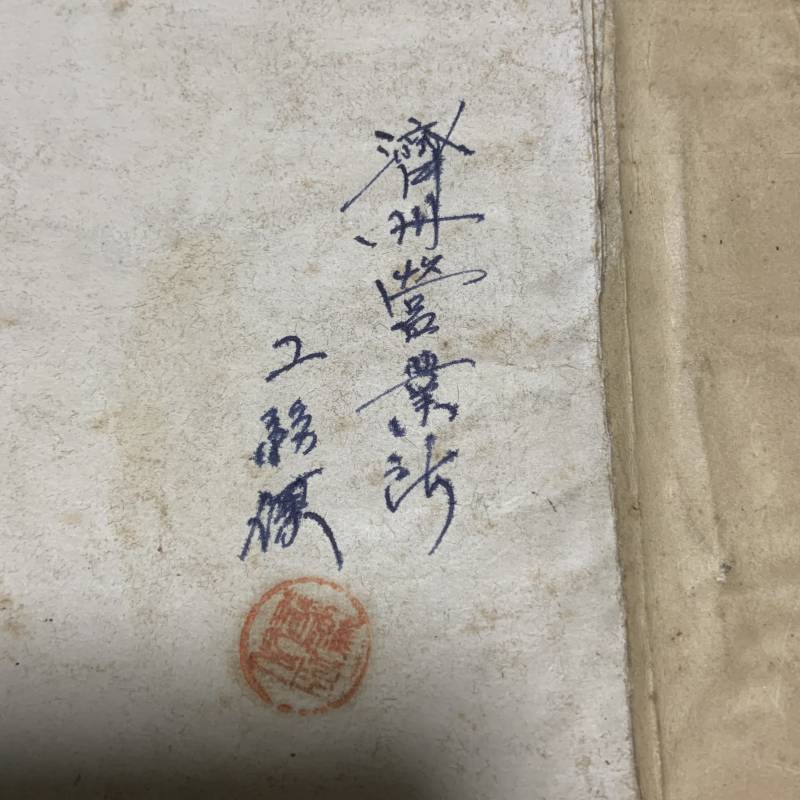 濟州營業所
工務係